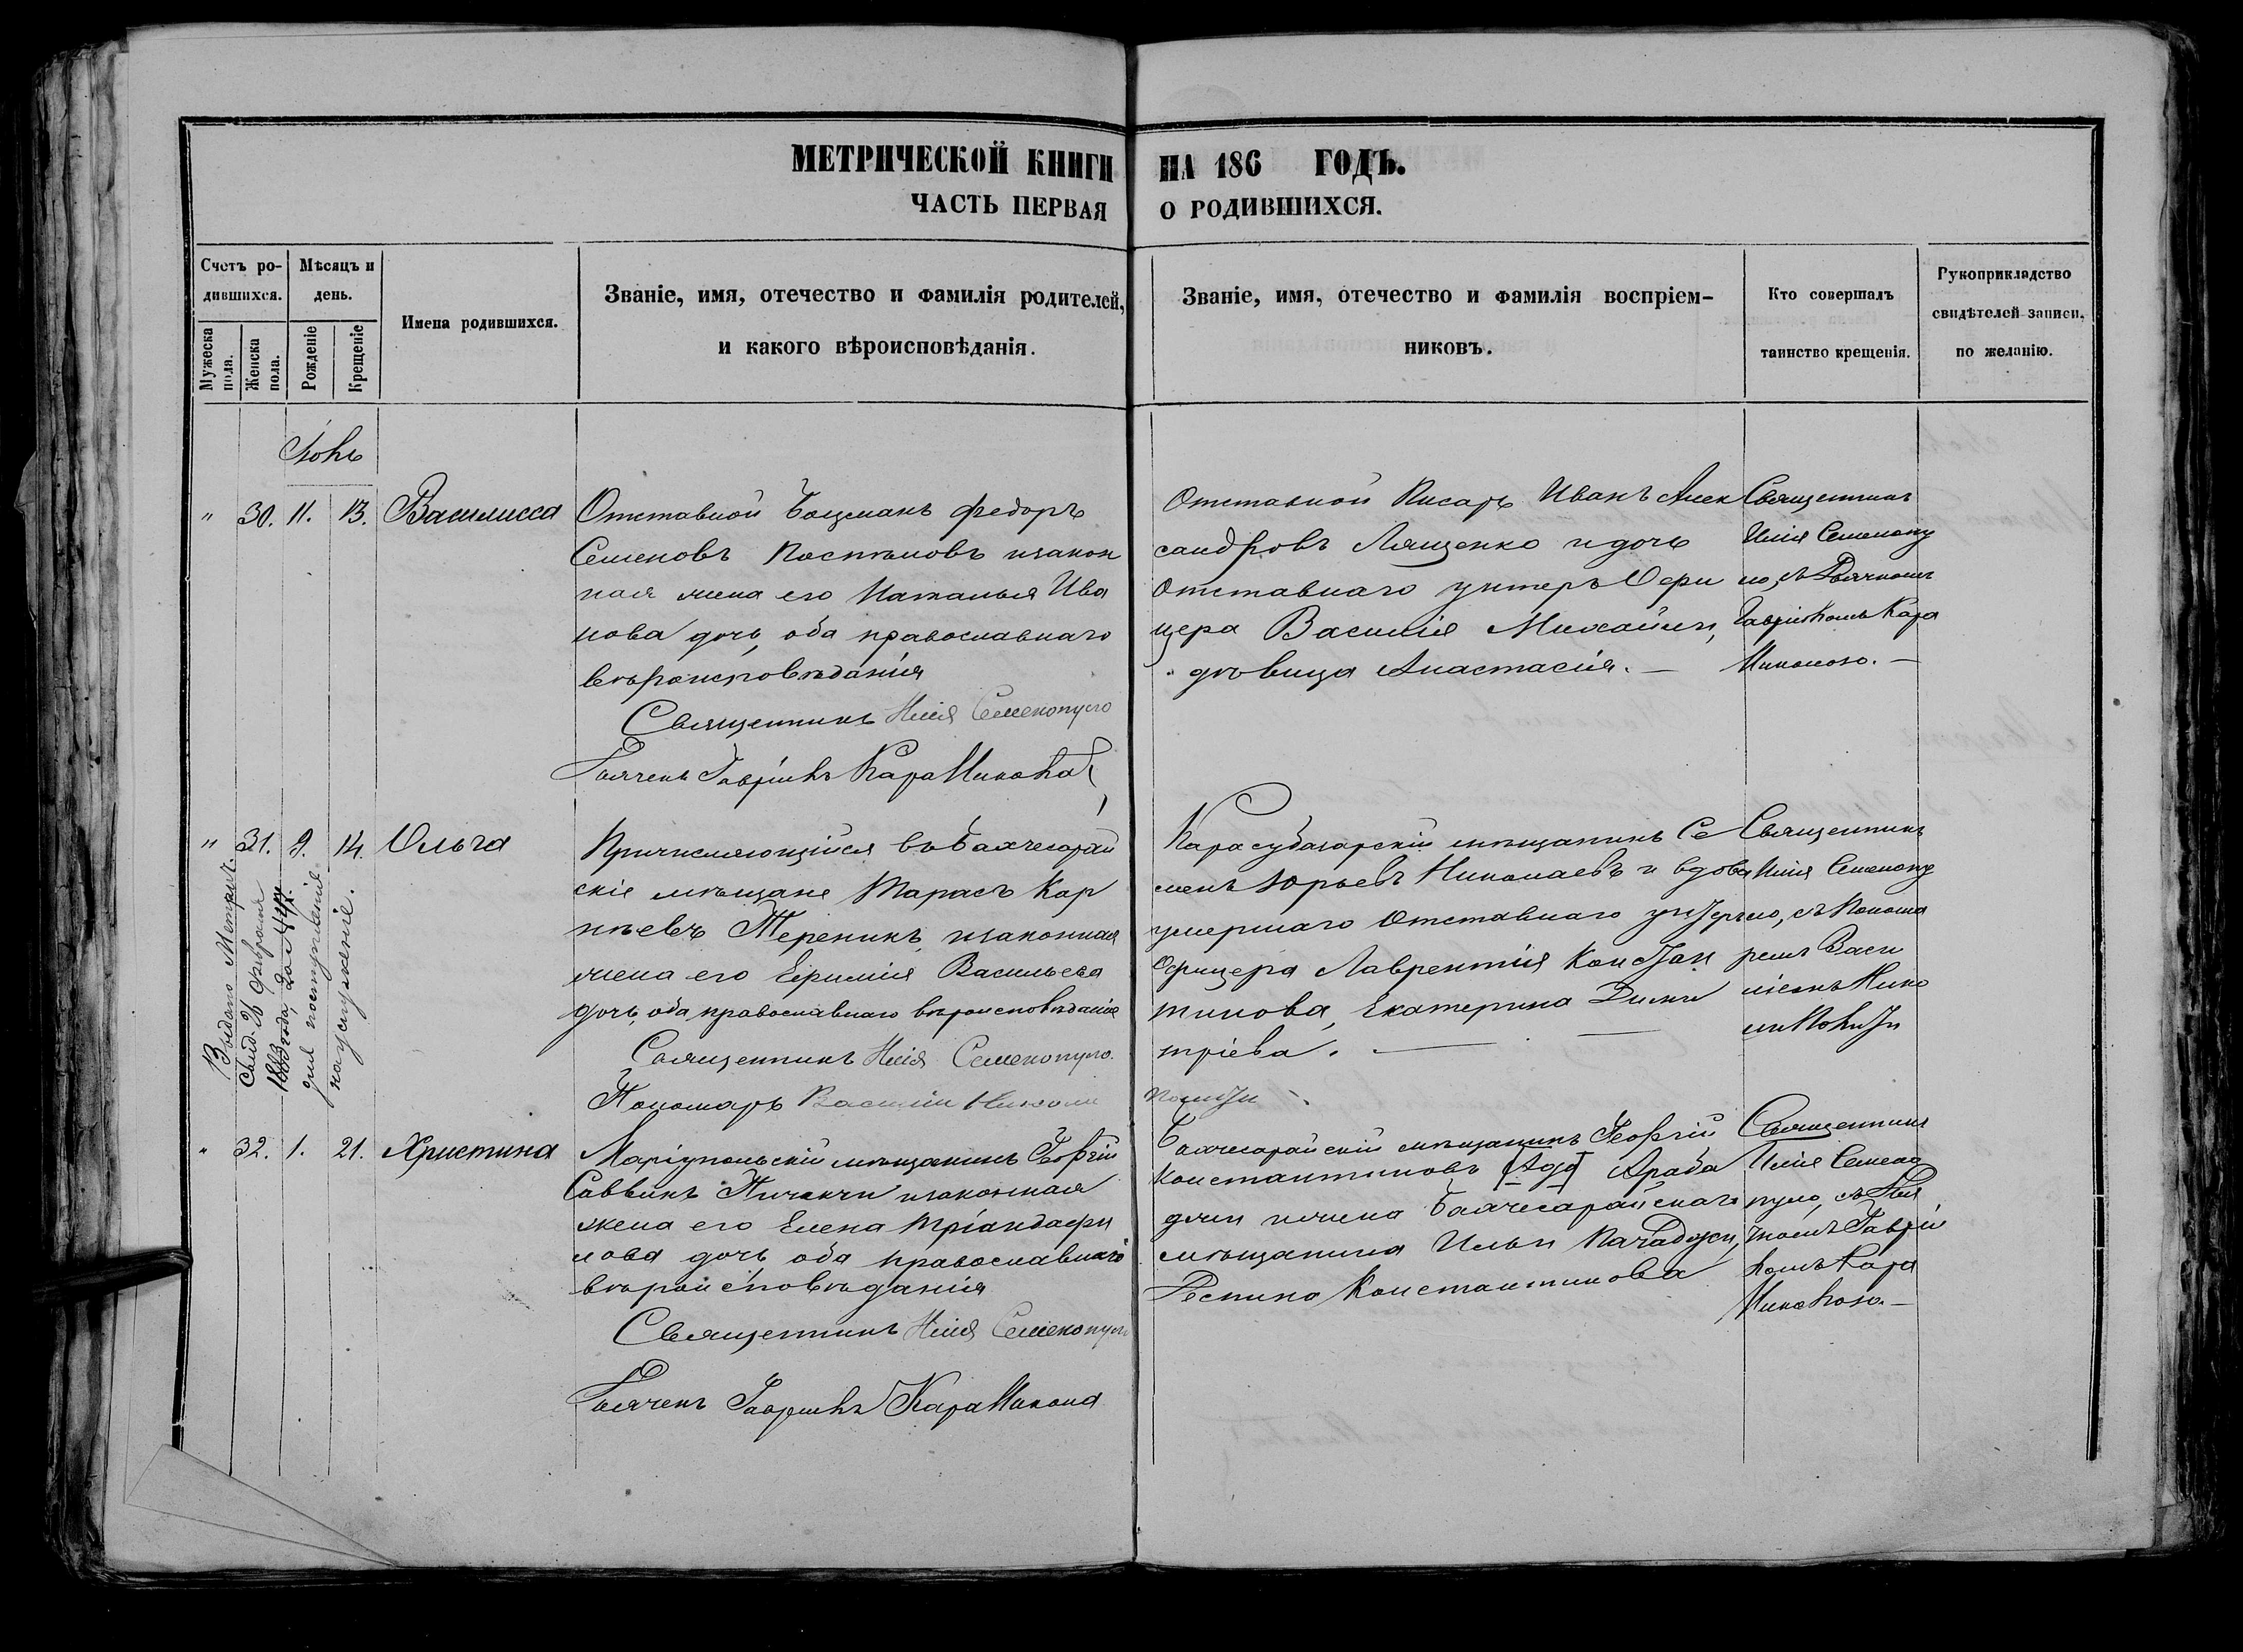 МЕТРИЧЕСКОЙ КНИГИ НА 186 ГОДЪ.
ЧАСТЬ ПЕРВАЯ О РОДИВШИХСЯ.
Счетъ ро-
дившихся.
Мужеска
пола.
Женска
пола.
Мѣсяцъ и
день.
Рожденіе
Крещеніе
Имена родившихся.
Званіе, имя, отечество и фамилія родителей,
и какого вѣроисповѣданія.
Званіе, имя, отечество и фамилія воспріем-
никовъ.
Кто совершалъ
таинство крещенія.
Рукоприкладство
свидѣтелей записи,
по желанію.
" 30. 11. 13. Василисса
Отставной Боцманъ Федоръ
Семеновъ изакон
ная жена его Наталья Ива
нова дочь, оба православнаго
вѣроисповѣданія
Священникъ Илія Семенопуло
Дьячекъ Гавріилъ
Отставной Писарь Иванъ Алек
сандровъ Лященко и дочь
Отставнаго унтеръ Офи
цера Василія Михайли,
дѣвица Анастасія. —
Священникъ
Илія Семенопу
ло, съ Дьячкомъ
Гавріиломъ Кара
" 31. 9. 14. Ольга
Выдано Метрич.
Свид. 26 Февраля
1883 года, за №
для поступленія
на служеніе.
Причисляющійся въ Бахчесарай
скіе мѣщане Тарасъ Кар
пѣевъ изаконная
жена его Васильева
дочь, оба православнаго вѣроисповѣданія
Священникъ Илія Семенопуло.
Пономарь Василій Николи
Карасубазарскій мѣщанинъ Се
менъ Юрьевъ Николаевъ и вдова
умершаго Отставнаго унтеръ
Офицера Лаврентія Констан
тинова, Екатерина Дими
тріева. —
Священникъ
Илія Семенопу
ло, съ Понома
ремъ Васи
ліемъ Нико
" 32. 1. 21. Христина
Маріупольскій мѣщанинъ Георгій
Саввинъ изаконная
жена его Елена Тріандафи
лова дочь оба православнаго
вѣроисповѣданія
Священникъ Илія Семенопуло
Дьячекъ Гавріилъ
Бахчесарайскій мѣщанинъ Георгій
Константиновъ Араба
джи и жена Бахчесарайскаго
мѣщанина Ильи
Деспина Константинова
Священникъ
Илія Семено
пуло, съ Дья
чкомъ Гаврі
ломъ Кара